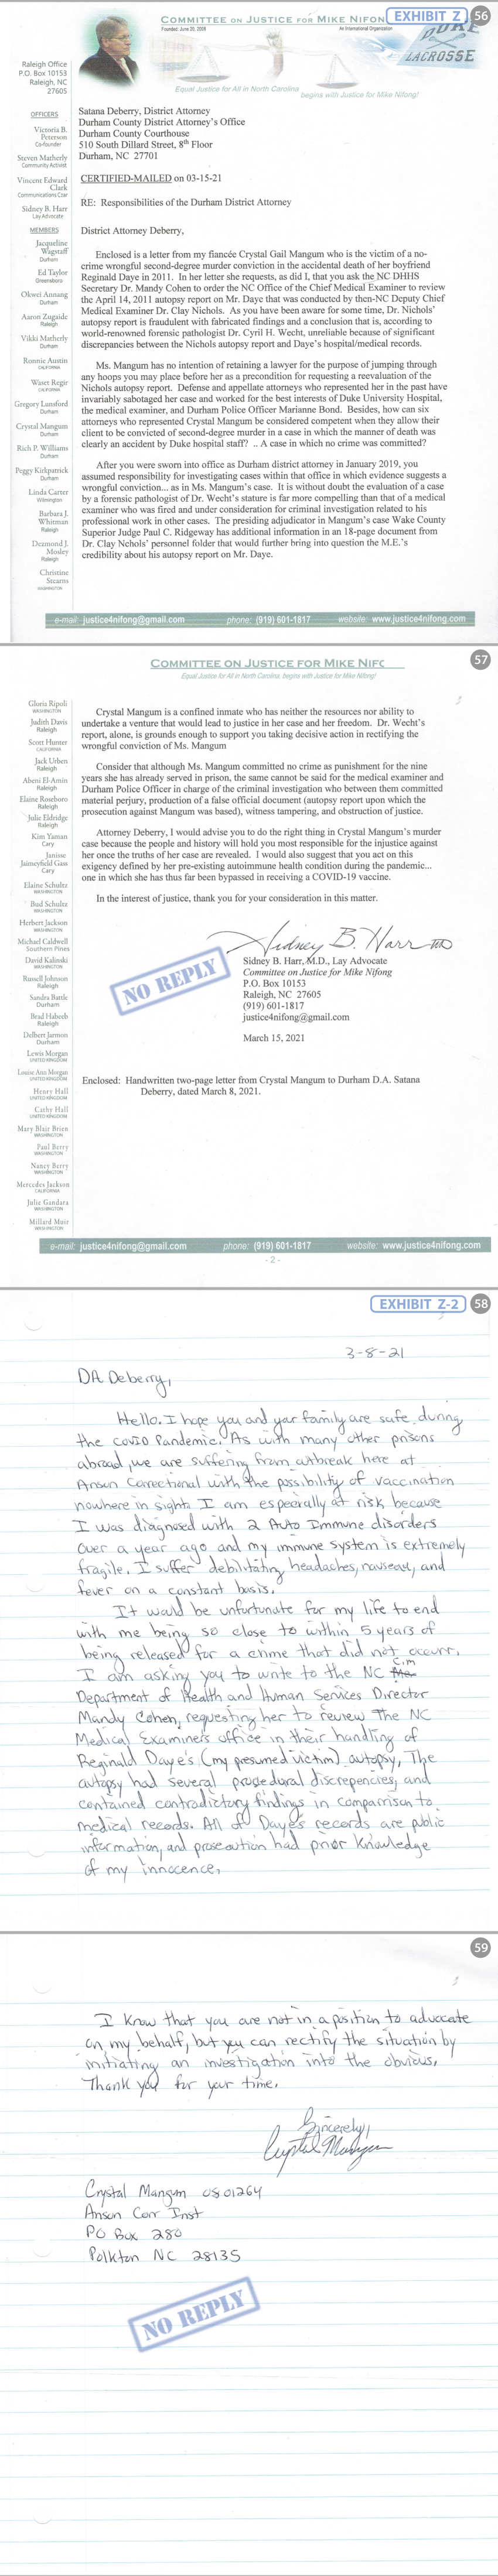 COMMITTEE ON JUSTICE FOR MIKE NIFON
EXHIBIT Z
56
Founded: June 20, 2008
An International Organization
DUKE
LACROSSE
Equal Justice for All in North Carolina
begins with Justice for Mike Nifong!
Raleigh Office
P.O. Box 10153
Raleigh, NC
27605
OFFICERS
Victoria B.
Peterson
Co-founder
Steven Matherly
Community Activist
Vincent Edward
Clark
Communications Czar
Sidney B. Harr
Lay Advocate
MEMBERS
Jacqueline
Wagstaff
Durham
Ed Taylor
Greensboro
Okwei Annang
Durham
Aaron Zugaide
Raleigh
Vikki Matherly
Durham
Ronnie Austin
CALIFORNIA
Waset Regir
CALIFORNIA
Gregory Lunsford
Durham
Crystal Mangum
Durham
Rich P. Williams
Durham
Peggy Kirkpatrick
Durham
Linda Carter
Wilmington
Barbara J.
Whitman
Raleigh
Dezmond J.
Mosley
Raleigh
Christine
Stearns
WASHINGTON
Satana Deberry, District Attorney
Durham County District Attorney's Office
Durham County Courthouse
510 South Dillard Street, 8th Floor
Durham, NC 27701
CERTIFIED-MAILED on 03-15-21
RE: Responsibilities of the Durham District Attorney
District Attorney Deberry,
Enclosed is a letter from my fiancée Crystal Gail Mangum who is the victim of a no-
crime wrongful second-degree murder conviction in the accidental death of her boyfriend
Reginald Daye in 2011. In her letter she requests, as did I, that you ask the NC DHHS
Secretary Dr. Mandy Cohen to order the NC Office of the Chief Medical Examiner to review
the April 14, 2011 autopsy report on Mr. Daye that was conducted by then-NC Deputy Chief
Medical Examiner Dr. Clay Nichols. As you have been aware for some time, Dr. Nichols'
autopsy report is fraudulent with fabricated findings and a conclusion that is, according to
world-renowned forensic pathologist Dr. Cyril H. Wecht, unreliable because of significant
discrepancies between the Nichols autopsy report and Daye's hospital/medical records.
Ms. Mangum has no intention of retaining a lawyer for the purpose of jumping through
any hoops you may place before her as a precondition for requesting a reevaluation of the
Nichols autopsy report. Defense and appellate attorneys who represented her in the past have
invariably sabotaged her case and worked for the best interests of Duke University Hospital,
the medical examiner, and Durham Police Officer Marianne Bond. Besides, how can six
attorneys who represented Crystal Mangum be considered competent when they allow their
client to be convicted of second-degree murder in a case in which the manner of death was
clearly an accident by Duke hospital staff? .. A case in which no crime was committed?
After you were sworn into office as Durham district attorney in January 2019, you
assumed responsibility for investigating cases within that office in which evidence suggests a
wrongful conviction... as in Ms. Mangum's case. It is without doubt the evaluation of a case
by a forensic pathologist of Dr. Wecht's stature is far more compelling than that of a medical
examiner who was fired and under consideration for criminal investigation related to his
professional work in other cases. The presiding adjudicator in Mangum's case Wake County
Superior Judge Paul C. Ridgeway has additional information in an 18-page document from
Dr. Clay Nichols' personnel folder that would further bring into question the M.E.'s
credibility about his autopsy report on Mr. Daye.
e-mail: justice4nifong@gmail.com phone: (919) 601-1817 website: www.justice4nifong.com
COMMITTEE ON JUSTICE FOR MIKE NIFC
57
Equal Justice for All in North Carolina, begins with Justice for Mike Nifong!
Gloria Ripoli
WASHINGTON
Judith Davis
Raleigh
Scott Hunter
CALIFORNIA
Jack Urben
Raleigh
Abeni El-Amin
Raleigh
Elaine Roseboro
Raleigh
Julie Eldridge
Raleigh
Kim Yaman
Cary
Janisse
Jaimeyfield Gass
Cary
Elaine Schultz
WASHINGTON
Bud Schultz
WASHINGTON
Herbert Jackson
WASHINGTON
Michael Caldwell
Southern Pines
David Kalinski
WASHINGTON
Russell Johnson
Raleigh
Sandra Battle
Durham
Brad Habeeb
Raleigh
Delbert Jarmon
Durham
Lewis Morgan
UNITED KINGDOM
Louise Ann Morgan
UNITED KINGDOM
Henry Hall
UNITED KINGDOM
Cathy Hall
UNITED KINGDOM
Mary Blair Brien
WASHINGTON
Paul Berry
WASHINGTON
Nancy Berry
WASHINGTON
Mercedes Jackson
CALIFORNIA
Julie Gandara
WASHINGTON
Millard Muir
WASHINGTON
Crystal Mangum is a confined inmate who has neither the resources nor ability to
undertake a venture that would lead to justice in her case and her freedom. Dr. Wecht's
report, alone, is grounds enough to support you taking decisive action in rectifying the
wrongful conviction of Ms. Mangum
Consider that although Ms. Mangum committed no crime as punishment for the nine
years she has already served in prison, the same cannot be said for the medical examiner and
Durham Police Officer in charge of the criminal investigation who between them committed
material perjury, production of a false official document (autopsy report upon which the
prosecution against Mangum was based), witness tampering, and obstruction of justice.
Attorney Deberry, I would advise you to do the right thing in Crystal Mangum's murder
case because the people and history will hold you most responsible for the injustice against
her once the truths of her case are revealed. I would also suggest that you act on this
exigency defined by her pre-existing autoimmune health condition during the pandemic...
one in which she has thus far been bypassed in receiving a COVID-19 vaccine.
In the interest of justice, thank you for your consideration in this matter.
Sidney B. Harr MD
NO REPLY
Sidney B. Harr, M.D., Lay Advocate
Committee on Justice for Mike Nifong
P.O. Box 10153
Raleigh, NC 27605
(919) 601-1817
justice4nifong@gmail.com
March 15, 2021
Enclosed: Handwritten two-page letter from Crystal Mangum to Durham D.A. Satana
Deberry, dated March 8, 2021.
e-mail: justice4nifong@gmail.com phone: (919) 601-1817 website: www.justice4nifong.com
- 2 -
EXHIBIT Z-2
58
3-8-21
DA Deberry,
Hello. I hope you and your family are safe during
the COVID Pandemic. As with many other prisons
abroad, we are suffering from outbreak here at
Anson Correctional with the possibility of vaccination
nowhere in sight. I am especially at risk because
I was diagnosed with 2 Auto Immune disorders
over a year ago and my immune system is extremely
fragile. I suffer debilitating headaches, nauseau, and
fever on a constant basis.
It would be unfortunate for my life to end
with me being so close to within 5 years of
being released for a crime that did not occurr.
I am asking you to write to the NC
Department of Health and Human Services Director
Mandy Cohen, requesting her to review the NC
Medical Examiners office in their handling of
Reginald Daye's (my presumed victim) autopsy. The
autopsy had several procedural discrepencies, and
contained contradictory findings in comparrison to
medical records. All of Daye's records are public
information, and prosecution had prior knowledge
of my innocence.
59
I know that you are not in a position to advocate
on my behalf, but you can rectify the situation by
initiating an investigation into the obvious.
Thank you for your time.
Sincerely,
Crystal Mangum
Crystal Mangum 0801264
Anson Corr Inst
PO Box 280
Polkton NC 28135
NO REPLY